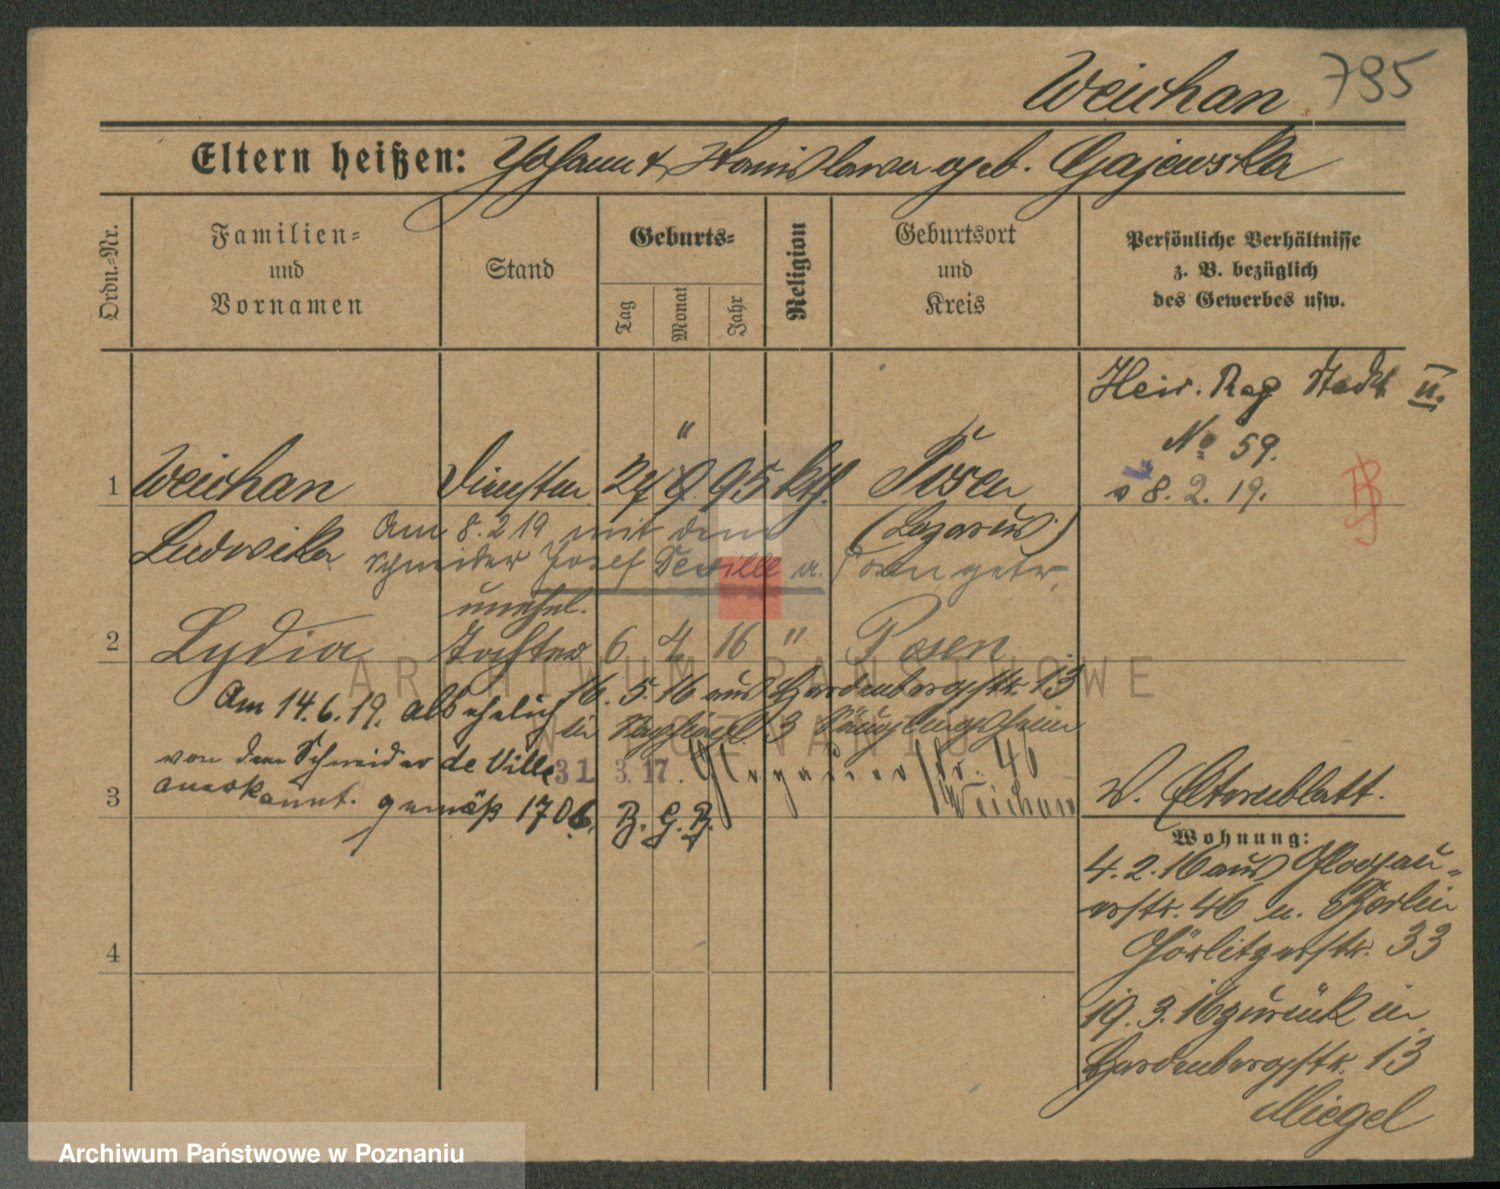 Weichan 795
Eltern heißen: Johann & Stanislawa geb. Gajewska
Ordn.-Nr.
Familien-
und
Vornamen
Stand
Geburts-
Tag
Monat
Jahr
Religion
Geburtsort
und
Kreis
Persönliche Verhältnisse
z. B. bezüglich
des Gewerbes usw.
Heir. Reg Stadt II.
No 59.
8. 2. 19.
1 Weichan 27 9. 95 kth. Posen
Ludwika
(Lazarus)
Am 8. 2 19 mit dem
Schneider Josef Deville i. Posen getr.
2 Lydia unehel.
Tochter 6 4 16 " Posen
16. 5. 16 aus Hardenbergstr. 13
in 3 Säuglingsheim
Am 14. 6. 19. als ehelich
von dem Schneider de Ville
anerkannt. gemäß 1706 B. G. B.
31. 3. 17. Glogauerstr. 46
Weichan
3
W. Elternblatt.
Wohnung:
4. 2. 16 aus Glogau-
erstr. 46 n. Berlin
Görlitzerstr. 33
19. 3. 16 zurück in
Hardenbergstr. 13
Miegel
4
ARCHIWUM PAŃSTWOWE
W POZNANIU
Archiwum Państwowe w Poznaniu